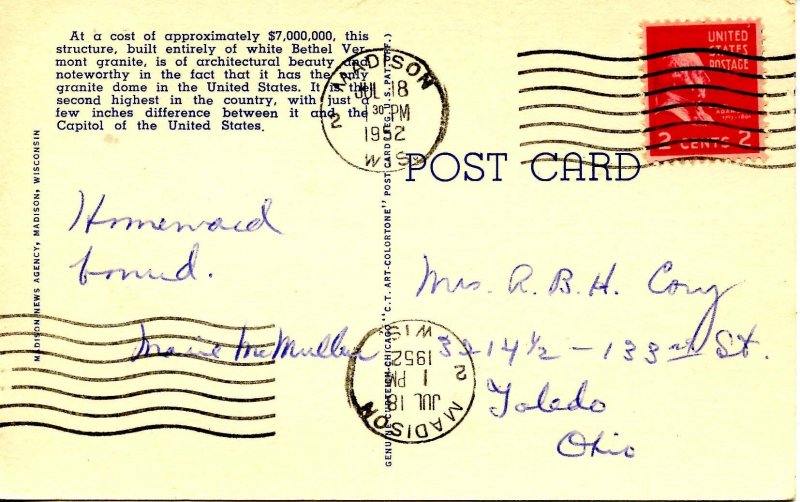 At a cost of approximately $7,000,000, this
structure, built entirely of white Bethel Ver-
mont granite, is of architectural beauty and
noteworthy in the fact that it has the only
granite dome in the United States. It is the
second highest in the country, with just a
few inches difference between it and the
Capitol of the United States.
MADISON NEWS AGENCY, MADISON, WISCONSIN
MADISON
JUL 18
4 30 PM
1952
2
WIS
UNITED
STATES
POSTAGE
2 CENTS 2
POST CARD
GENUINE CURTEICH-CHICAGO "C.T. ART-COLORTONE" POST CARD (REG. U.S. PAT. OFF.)
Homeward
bound.
Marie McMullen
Mrs. A. B. H. Cory
3214½ - 133rd St.
Toledo
Ohio
MADISON
JUL 18
1 PM
1952
2
WIS